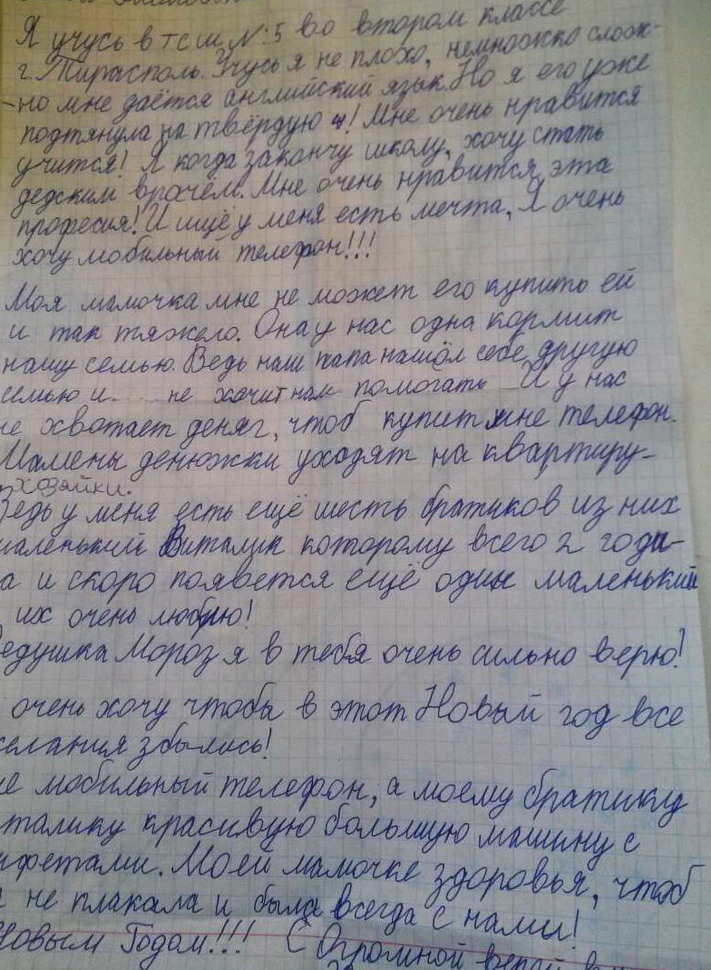 Я учусь в тсш №:5 во втором классе
г. Тирасполь. Учусь я не плохо, немножко слож-
-но мне даётся английский язык. Но я его уже
подтянула на твёрдую 4! Мне очень нравится
учится! Я когда закончу школу, хочу стать
дедским врачём. Мне очень нравится эта
професия! И ищё у меня есть мечта, Я очень
хочу мобильный телефон!!!
Моя мамочка мне не может его купить ей
и так тяжело. Она у нас одна кормит
нашу семью. Ведь наш папа нашол себе другую
семью и.... не хочит нам помогать И у нас
не хвотает деняг, чтоб купит мне телефон.
Мамены денюжки уходят на квартиру-
хозяйки.
Ведь у меня есть ещё шесть братиков из них
маленький Виталик которому всего 2 годи-
а и скоро появется ещё один маленький
их очень люблю!
едушка Мороз я в тебя очень сильно верю!
очень хочу чтобы в этот Новый год все
желания збылись!
не мобильный телефон, а моему братику
талику красивую большую машину с
нфетами. Моей мамочке здоровья, чтоб
не плакала и была всегда с нами!
Новым Годом!!! С Огромной верой в